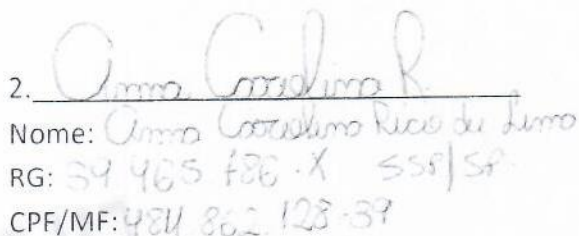 2. Anna Carolina R.
Nome: Anna Carolina Rico de Lima
RG: 39 465 786 - X SSP/SP
CPF/MF: 484 862 128-39